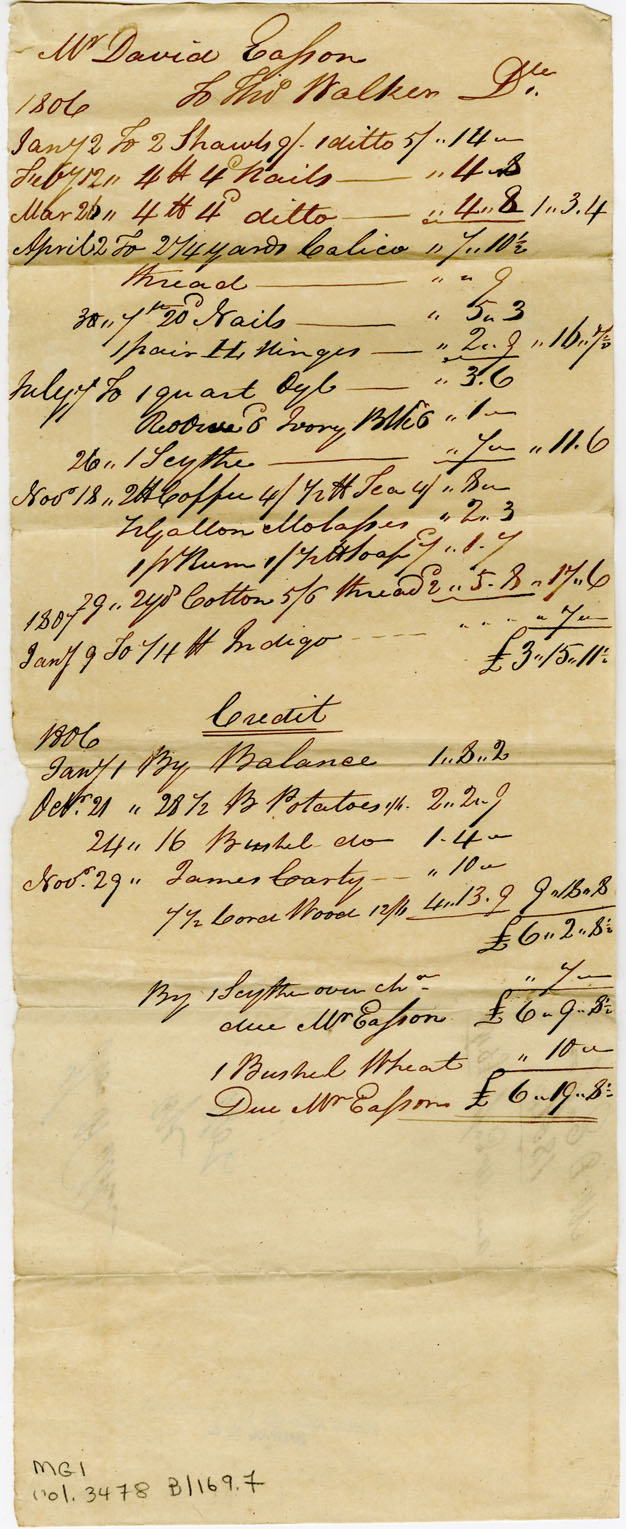 Mr David Easson
To Thos Walker Dr.
1806
Jany 2 To 2 Shawls 9/. 1 ditto 5/ " 14 "
Feby 12 " 4 lb 4d Nails — " 4 " 8
Mar 26 " 4 lb 4d ditto — " 4 " 8 1 " 3 . 4
April 2 To 2 1/4 yards Calico " 7 " 10 1/2
thread — " " 9
30 " 7 lb 20d Nails — " 5 " 3
1 pair H Hinges — " 2 " 9 " 16 " 7 1/2
July 7 To 1 quart Oyl — " 3 . 6
6 Ivory Blk 6 " 1 "
26 " 1 Scythe — " 7 " " 11 . 6
Novr 18 " 2 lb Coffee 4/ 1/2 lb Tea 4/ " 8 "
1/2 Gallon Molasses " 2 " 3
1 pt Rum 1/ 1/2 lb Soap 7d " 1 . 7
29 " 2 yds Cotton 5/6 thread 2d " 5 . 8 " 17 " 6
1807
Jany 9 To 1/4 lb Indigo " " " " 7 "
£ 3 " 15 " 11 1/2
Credit
1806
Jany 1 By Balance 1 " 8 " 2
Octr. 21 " 28 1/2 B Potatoes 1/6. 2 " 2 " 9
24 " 16 Bushel do 1 . 4 "
Novr. 29 " James Carty — " 10 "
7 1/2 Cord Wood 12/6 4 " 13 . 9 9 " 18 " 8
£ 6 " 2 " 8 1/2
By 1 Scythe over chd " 7 "
due Mr Easson £ 6 " 9 " 8 1/2
1 Bushel Wheat " 10 "
Due Mr Easson £ 6 " 19 " 8 1/2
MG1
vol. 3478 B/169.7